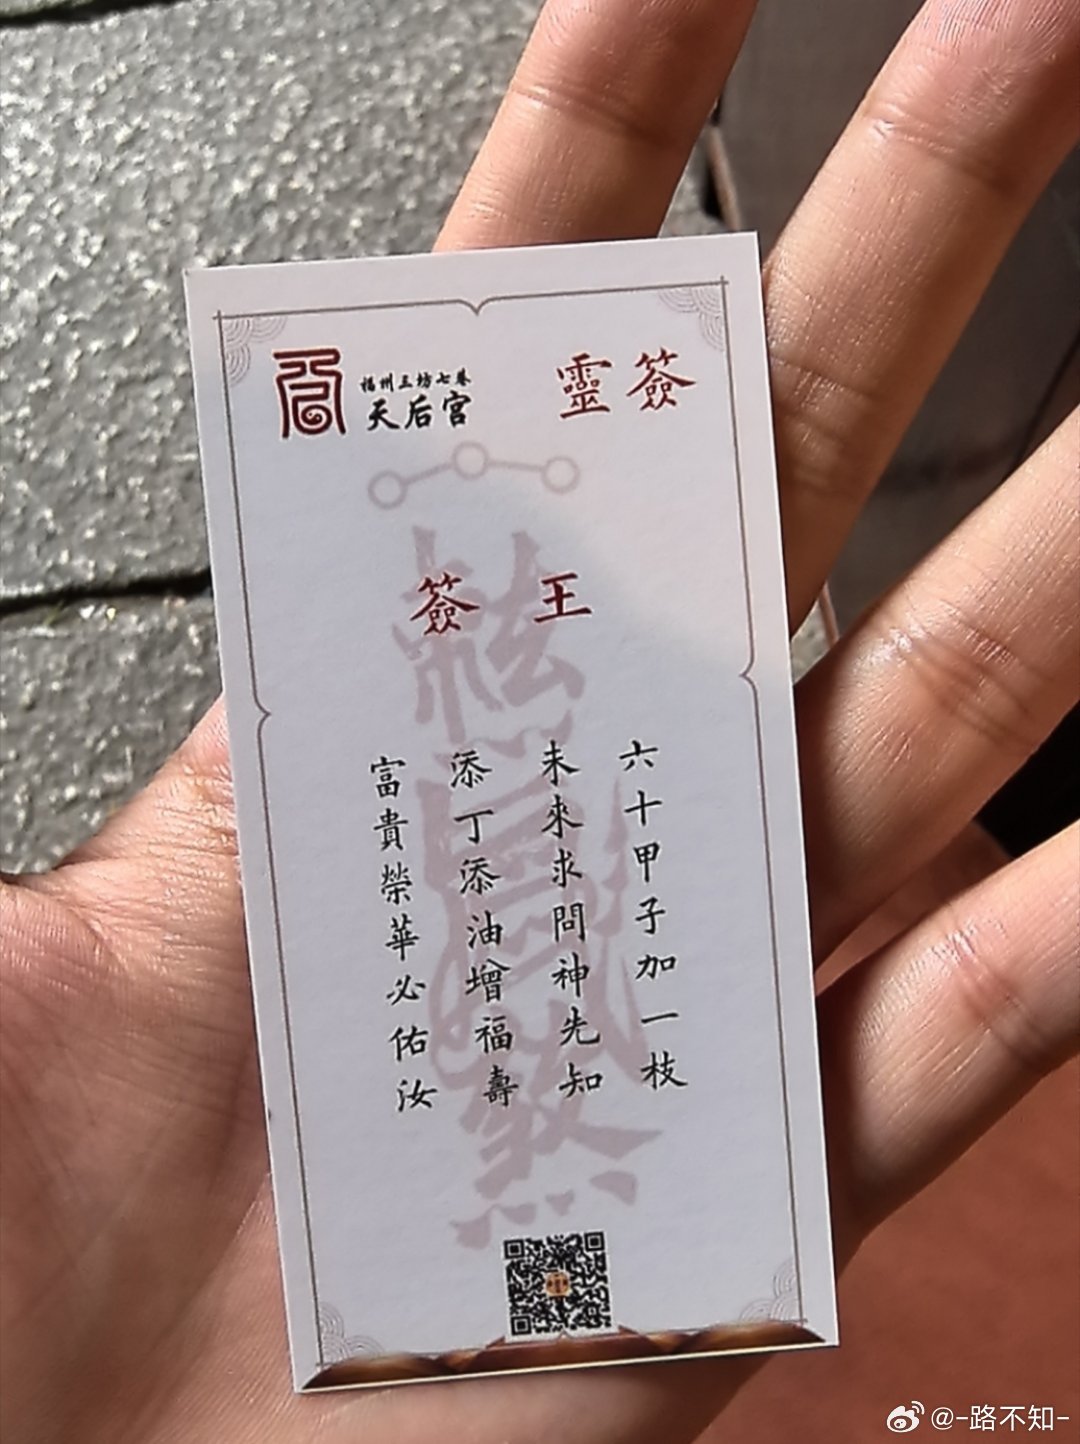 福州三坊七巷
天后宫
靈簽
簽王
六十甲子加一枝
未來求問神先知
添丁添油增福壽
富貴榮華必佑汝
@-路不知-